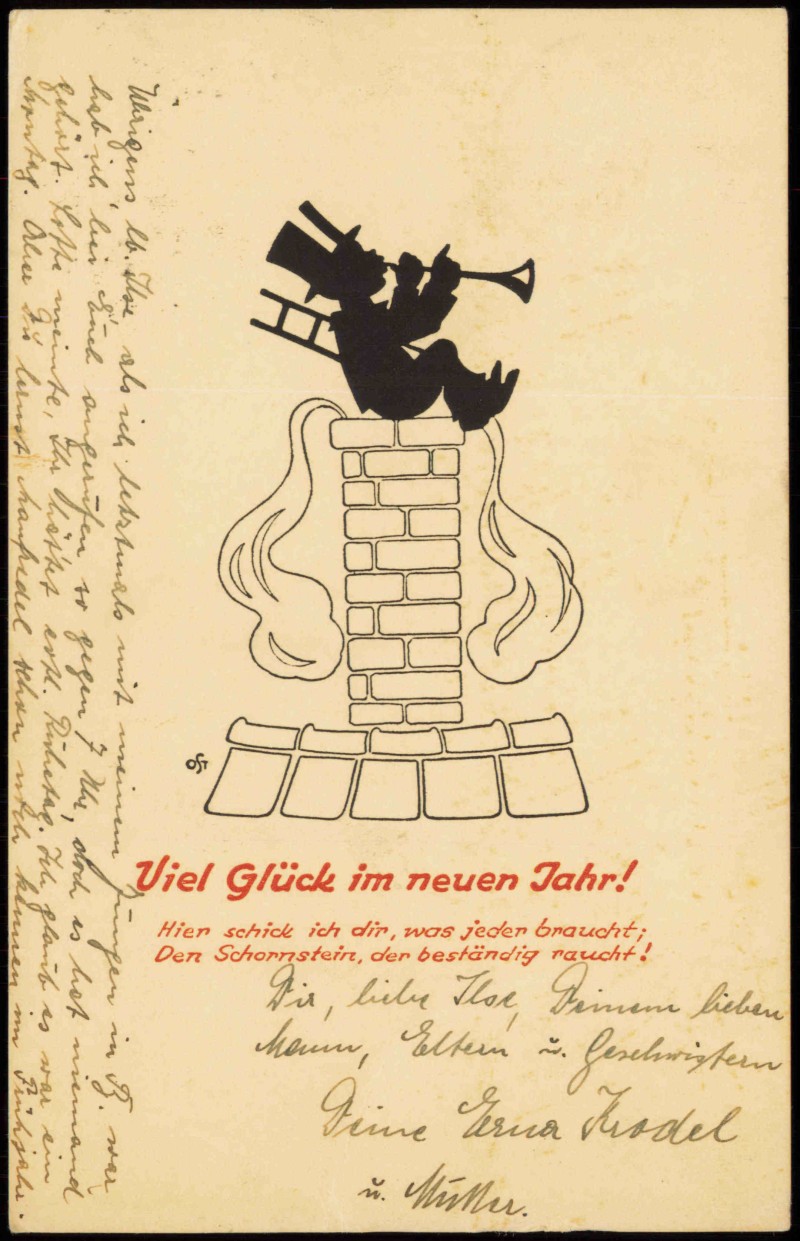 Viel Glück im neuen Jahr!
Hier schick ich dir, was jeder braucht;
Den Schornstein, der beständig raucht!
Dir, liebe Ilse, Deinem lieben
Mann, Eltern u. Geschwistern
Deine Erna Krodel
u. Mutter.
Übrigens lb. Ilse als ich letztmals mit meinem Jungen in B. war
hab ich bei Euch angerufen so gegen 7 Uhr, doch es hat niemand
gehört. Lotte meinte, Ihr hättet evtl. Ruhetag. Ich glaub es war ein
Montag. Aber Du lernst Manfredel schon noch kennen im Frühjahr.
OST